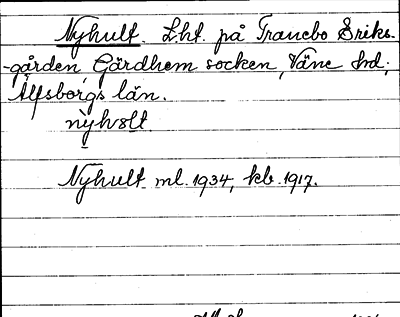 Nyhult. Lht. på Tranebo Eriks-
-gården, Gärdhem socken, Väne hd.,
Älfsborgs län.
nyhult
Nyhult ml. 1934, kb. 1917.